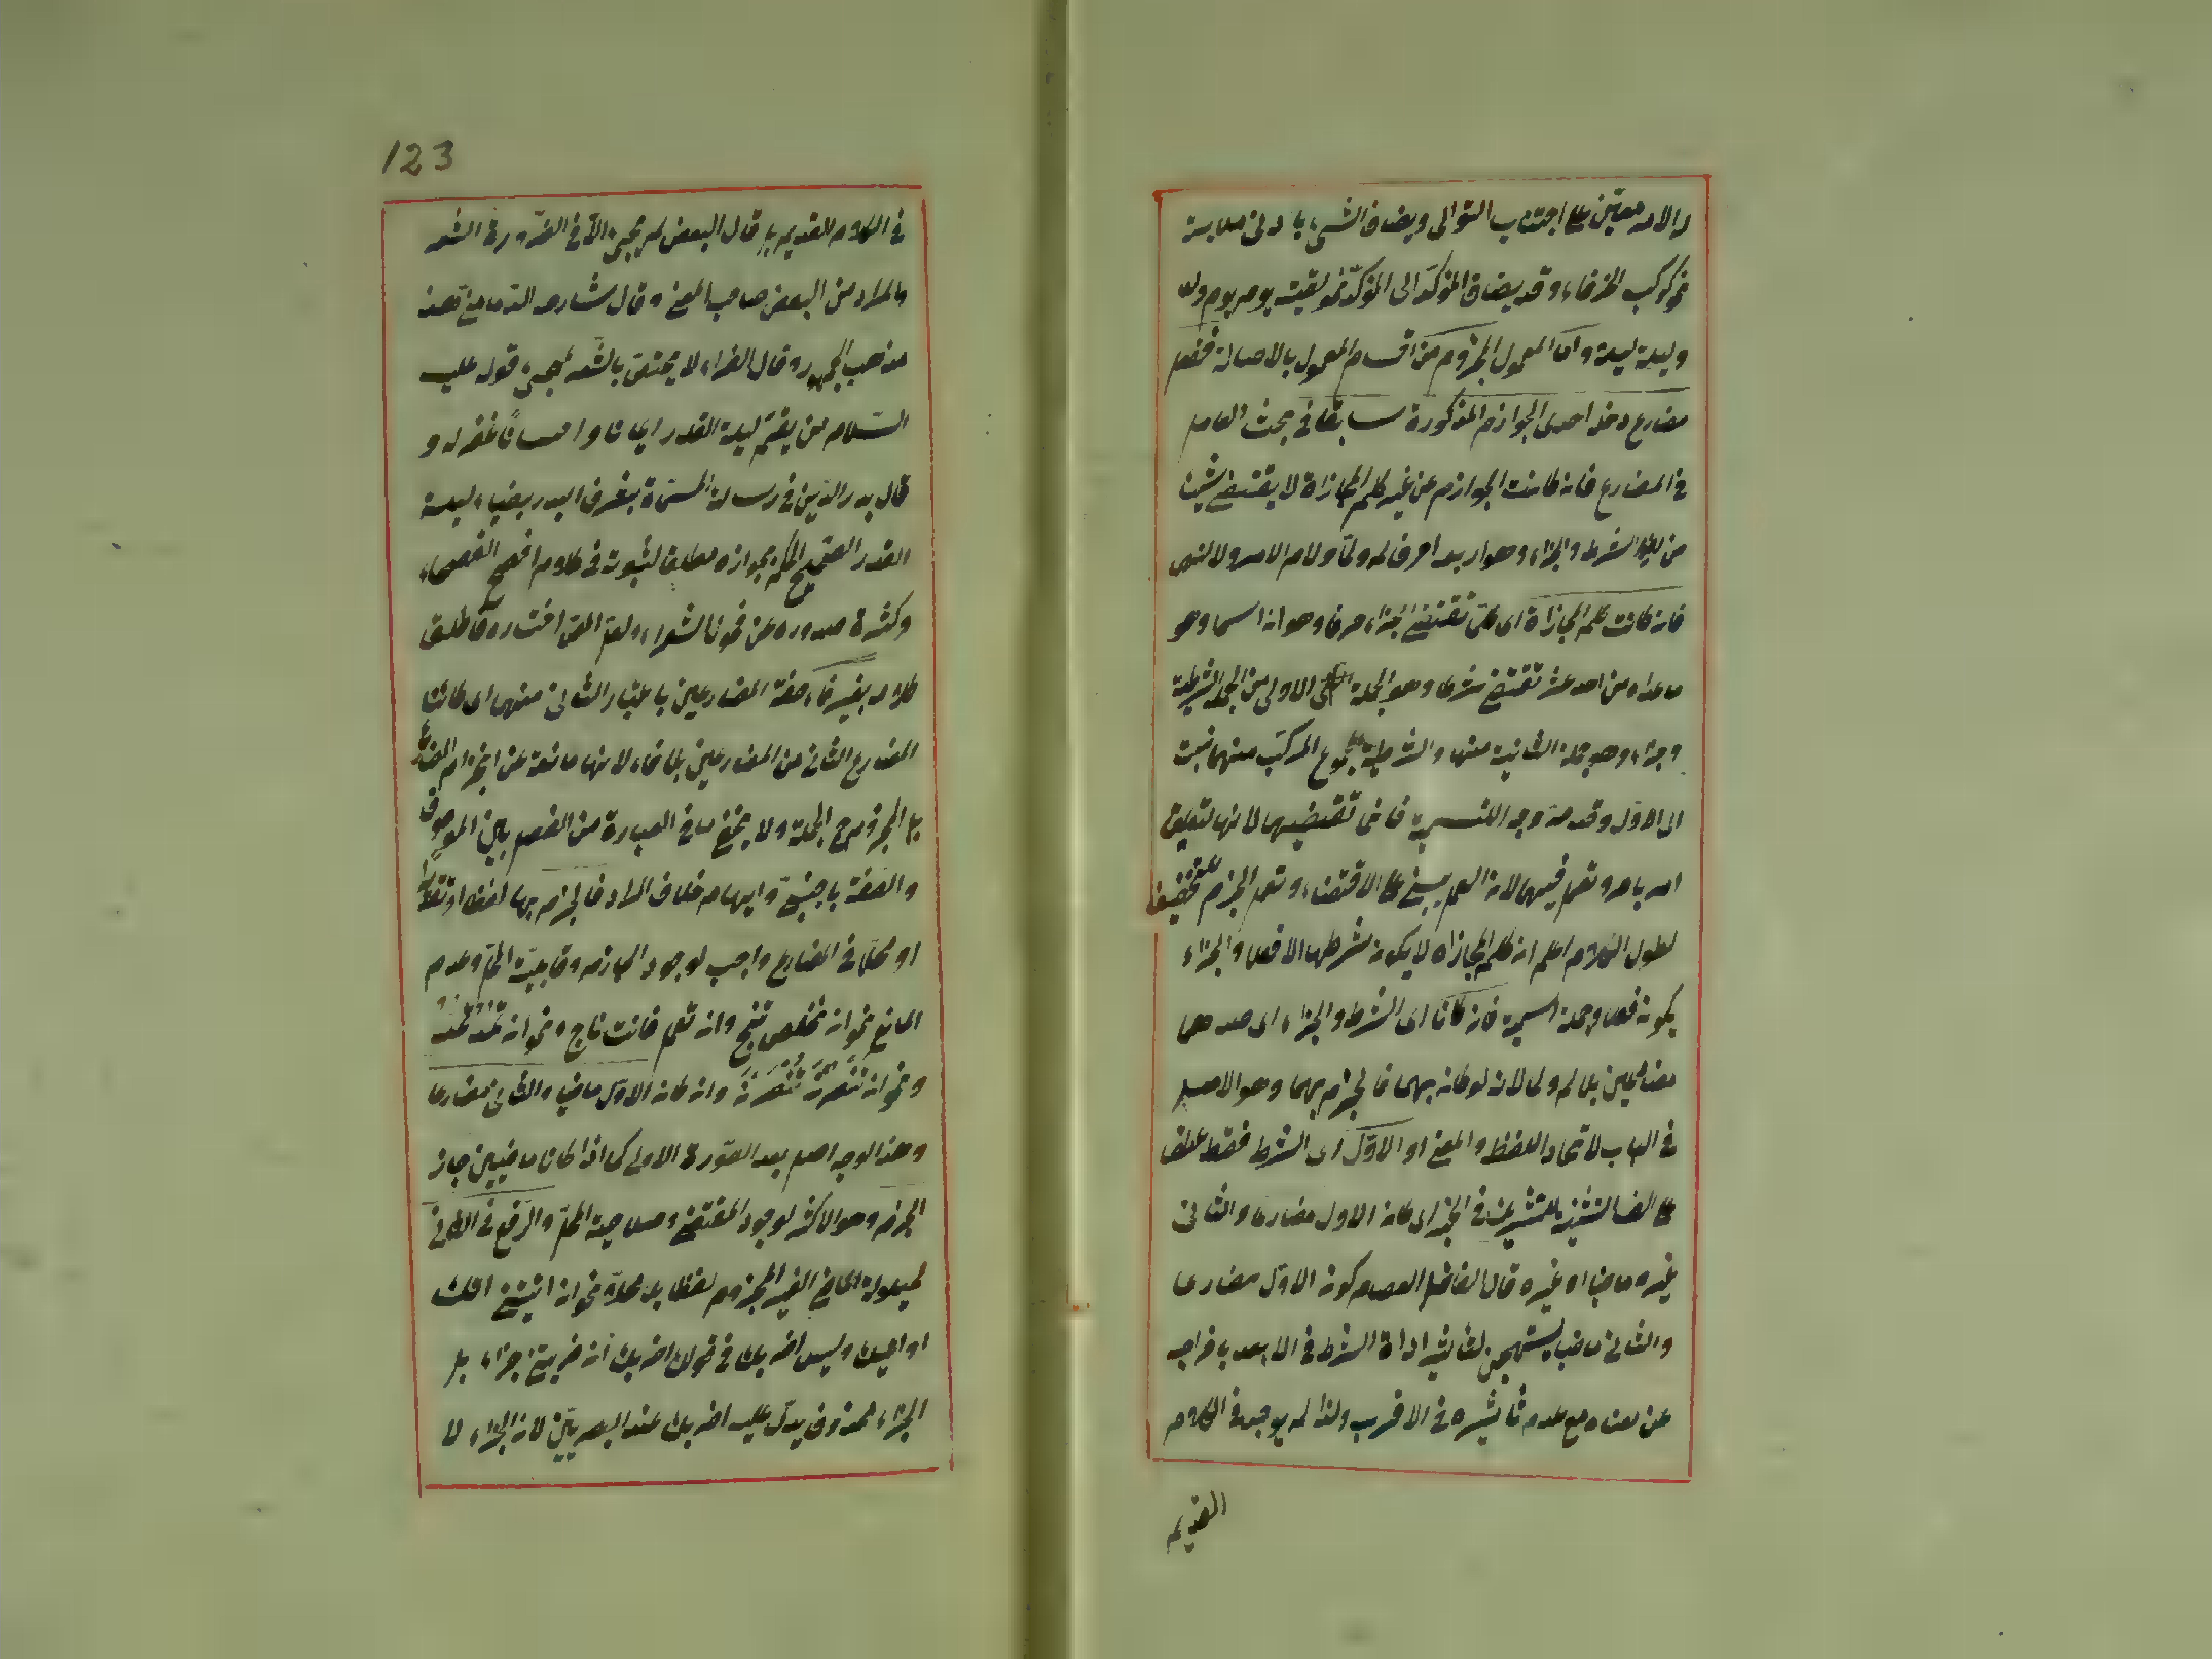 لا لامعين على اجتناب التوالى ويضاف الشئ بادنى ملابسة
نحو كوكب الخرقاء وقد يضاف المؤكد الى المؤكد نحو لقيته يوم يوم
وليلة ليلة واما المعمول المجزوم من اقسام المعمول بالاصالة ففعل
مضارع دخله احدى الجوازم المذكورة سابقا فى بحث العامل
فى المضارع فان كانت الجوازم من غير كلم المجازاة لا يقتضى شيئا
من الشرط والجزاء وهو اربعة احرف لم ولما ولام الامر ولا النهى
فان كانت كلم المجازاة اى كلم تقتضى جزاء حرفا وهو ان اسما وهو
ما عداه من احد عشر تقتضى شرطا وهو الجملة الاولى من الجملة الشرطية
وجزاء وهو جملة الثانية منها والشرطية مجموع المركب منهما نسبت
الى الاول وقد مر وجه التسمية تقتضيهما لانها لتعليق
امر بامر وتعمل فيهما لان العمل يبنى على الاقتضاء وتعمل الجزم تخفيفا
لطول الكلام اعلم ان كلم المجازاة لا يكون شرطها الا فعلا والجزاء
يكون فعلا وجملة اسمية فان كانا اى الشرط والجزاء اى صدرهما
مضارعين بلا لم ولما لانه لو كان بهما فالجزم بهما وهو الاصل
فى الباب لاتحاد اللفظ والمعنى او الاول اى الشرط فقط عطف
على الف التثنية للتشريك فى الخبر اى كان الاول مضارعا والثانى
غيره ماضيا او غيره قال الفاضل العصام كون الاول مضارعا
والثانى ماضيا يستهجن لتاثير اداة الشرط فى الابعد باخراجه
عن معناه مع عدم تاثيره فى الاقرب ولذا لم يوجد فى الكلام
القديم
123
فى الكلام القديم بل قال البعض لم يجئ الا فى الضرورة الشعر
والمراد من البعض صاحب المغنى وقال شارحه الدمامينى هذا
مذهب الجمهور وقال الفراء لا يختص بالشعر لمجئ قوله عليه
السلام من يقم ليلة القدر ايمانا واحتسابا غفر له و
قال بدر الدين فى رسالة المسماة بغرف البدر بضياء ليلة
القدر الصحيح الحكم بجوازه مطلقا لثبوته فى كلام افصح الفصحاء
وكثرة صدوره عن فحول الشعراء ولعل المص اختاره فاطلق
كلامه بغير فاء صفة المضارعين باعتبار الثانى منهما اى كائنا
المضارع الثانى من المضارعين بلا فاء لانها مانعة عن انجزام المضارع
بل المجزوم ح الجملة ولا يخفى ما فى العبارة من الفصل بين الموصوف
والصفة باجنبى وايهام خلاف المراد فالجزم بهما لفظا او تقديرا
او محلا فى المضارع واجب لوجود الجازم وقابلية المحل وعدم
المانع نحو ان تخلص تنج وان تعمل فانت ناج ونحو ان
ونحو ان تنصرن تنصرن وان كان الاول ماضيا والثانى مضارعا
وهذا الوجه اصل بعد الصورة الاولى كما اذا كانا ماضيين جاز
الجزم وهو الاكثر لوجود المقتضى وصلاحية المحل والرفع فى الثانى
لحيلولة الماضى الغير المجزوم لفظا بل محلا نحو ان اتيتنى اتك
او اتيك وليس اضربك فى قولك اضربك ان ضربتنى جزاء بل
الجزاء محذوف يدل عليه اضربك عند البصريين لان الجزاء لا